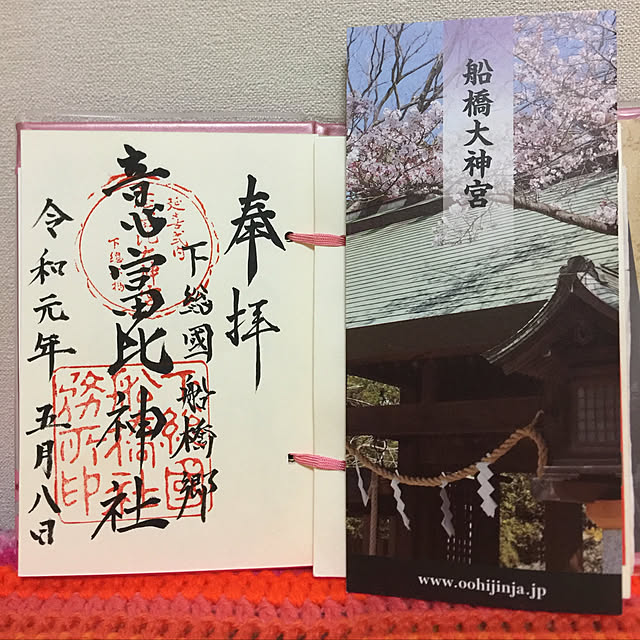 奉拝
下総國船橋郷
意富比神社
令和元年 五月八日
船橋大神宮
www.oohijinja.jp